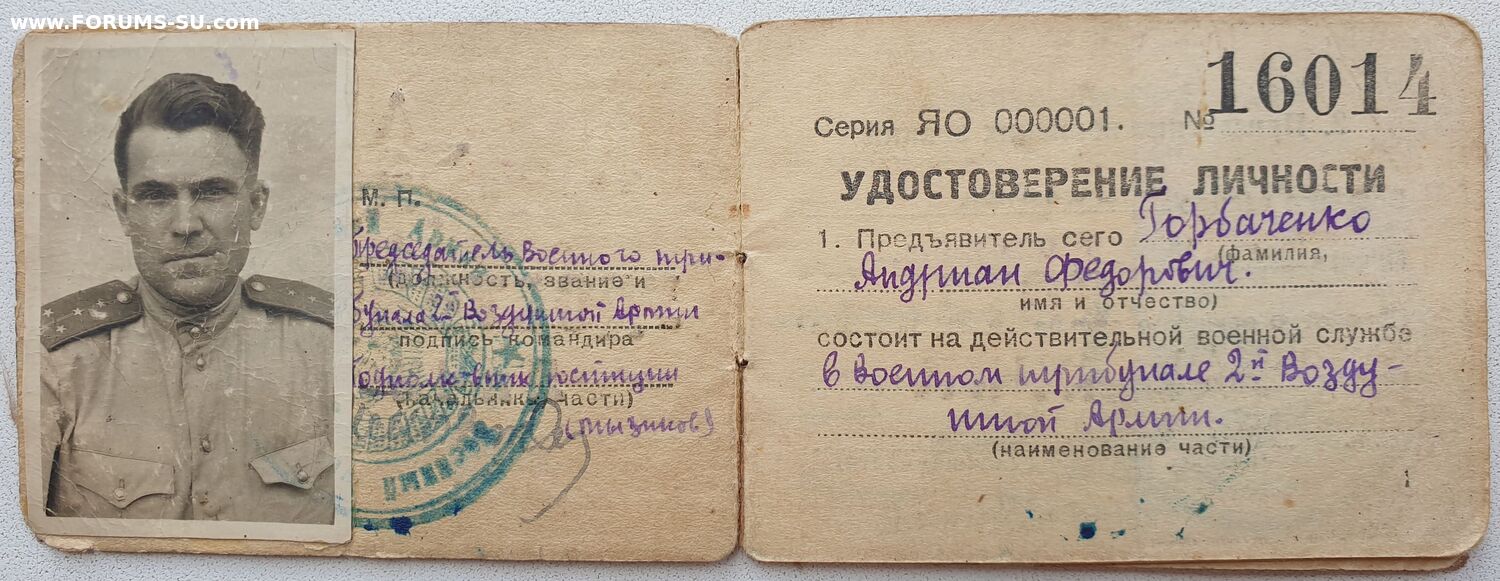 www.FORUMS-SU.com
М. П.
Председатель Военного три-
(должность, звание и
бунала 2й Воздушной Армии
подпись командира
Подполковник юстиции
начальник части)
Военный
Серия ЯО 000001. № 16014
УДОСТОВЕРЕНИЕ ЛИЧНОСТИ
1. Предъявитель сего Горбаченко
(фамилия,
Андриан Федорович.
имя и отчество)
состоит на действительной военной службе
в Военном трибунале 2й Возду-
шной Армии.
(наименование части)
1